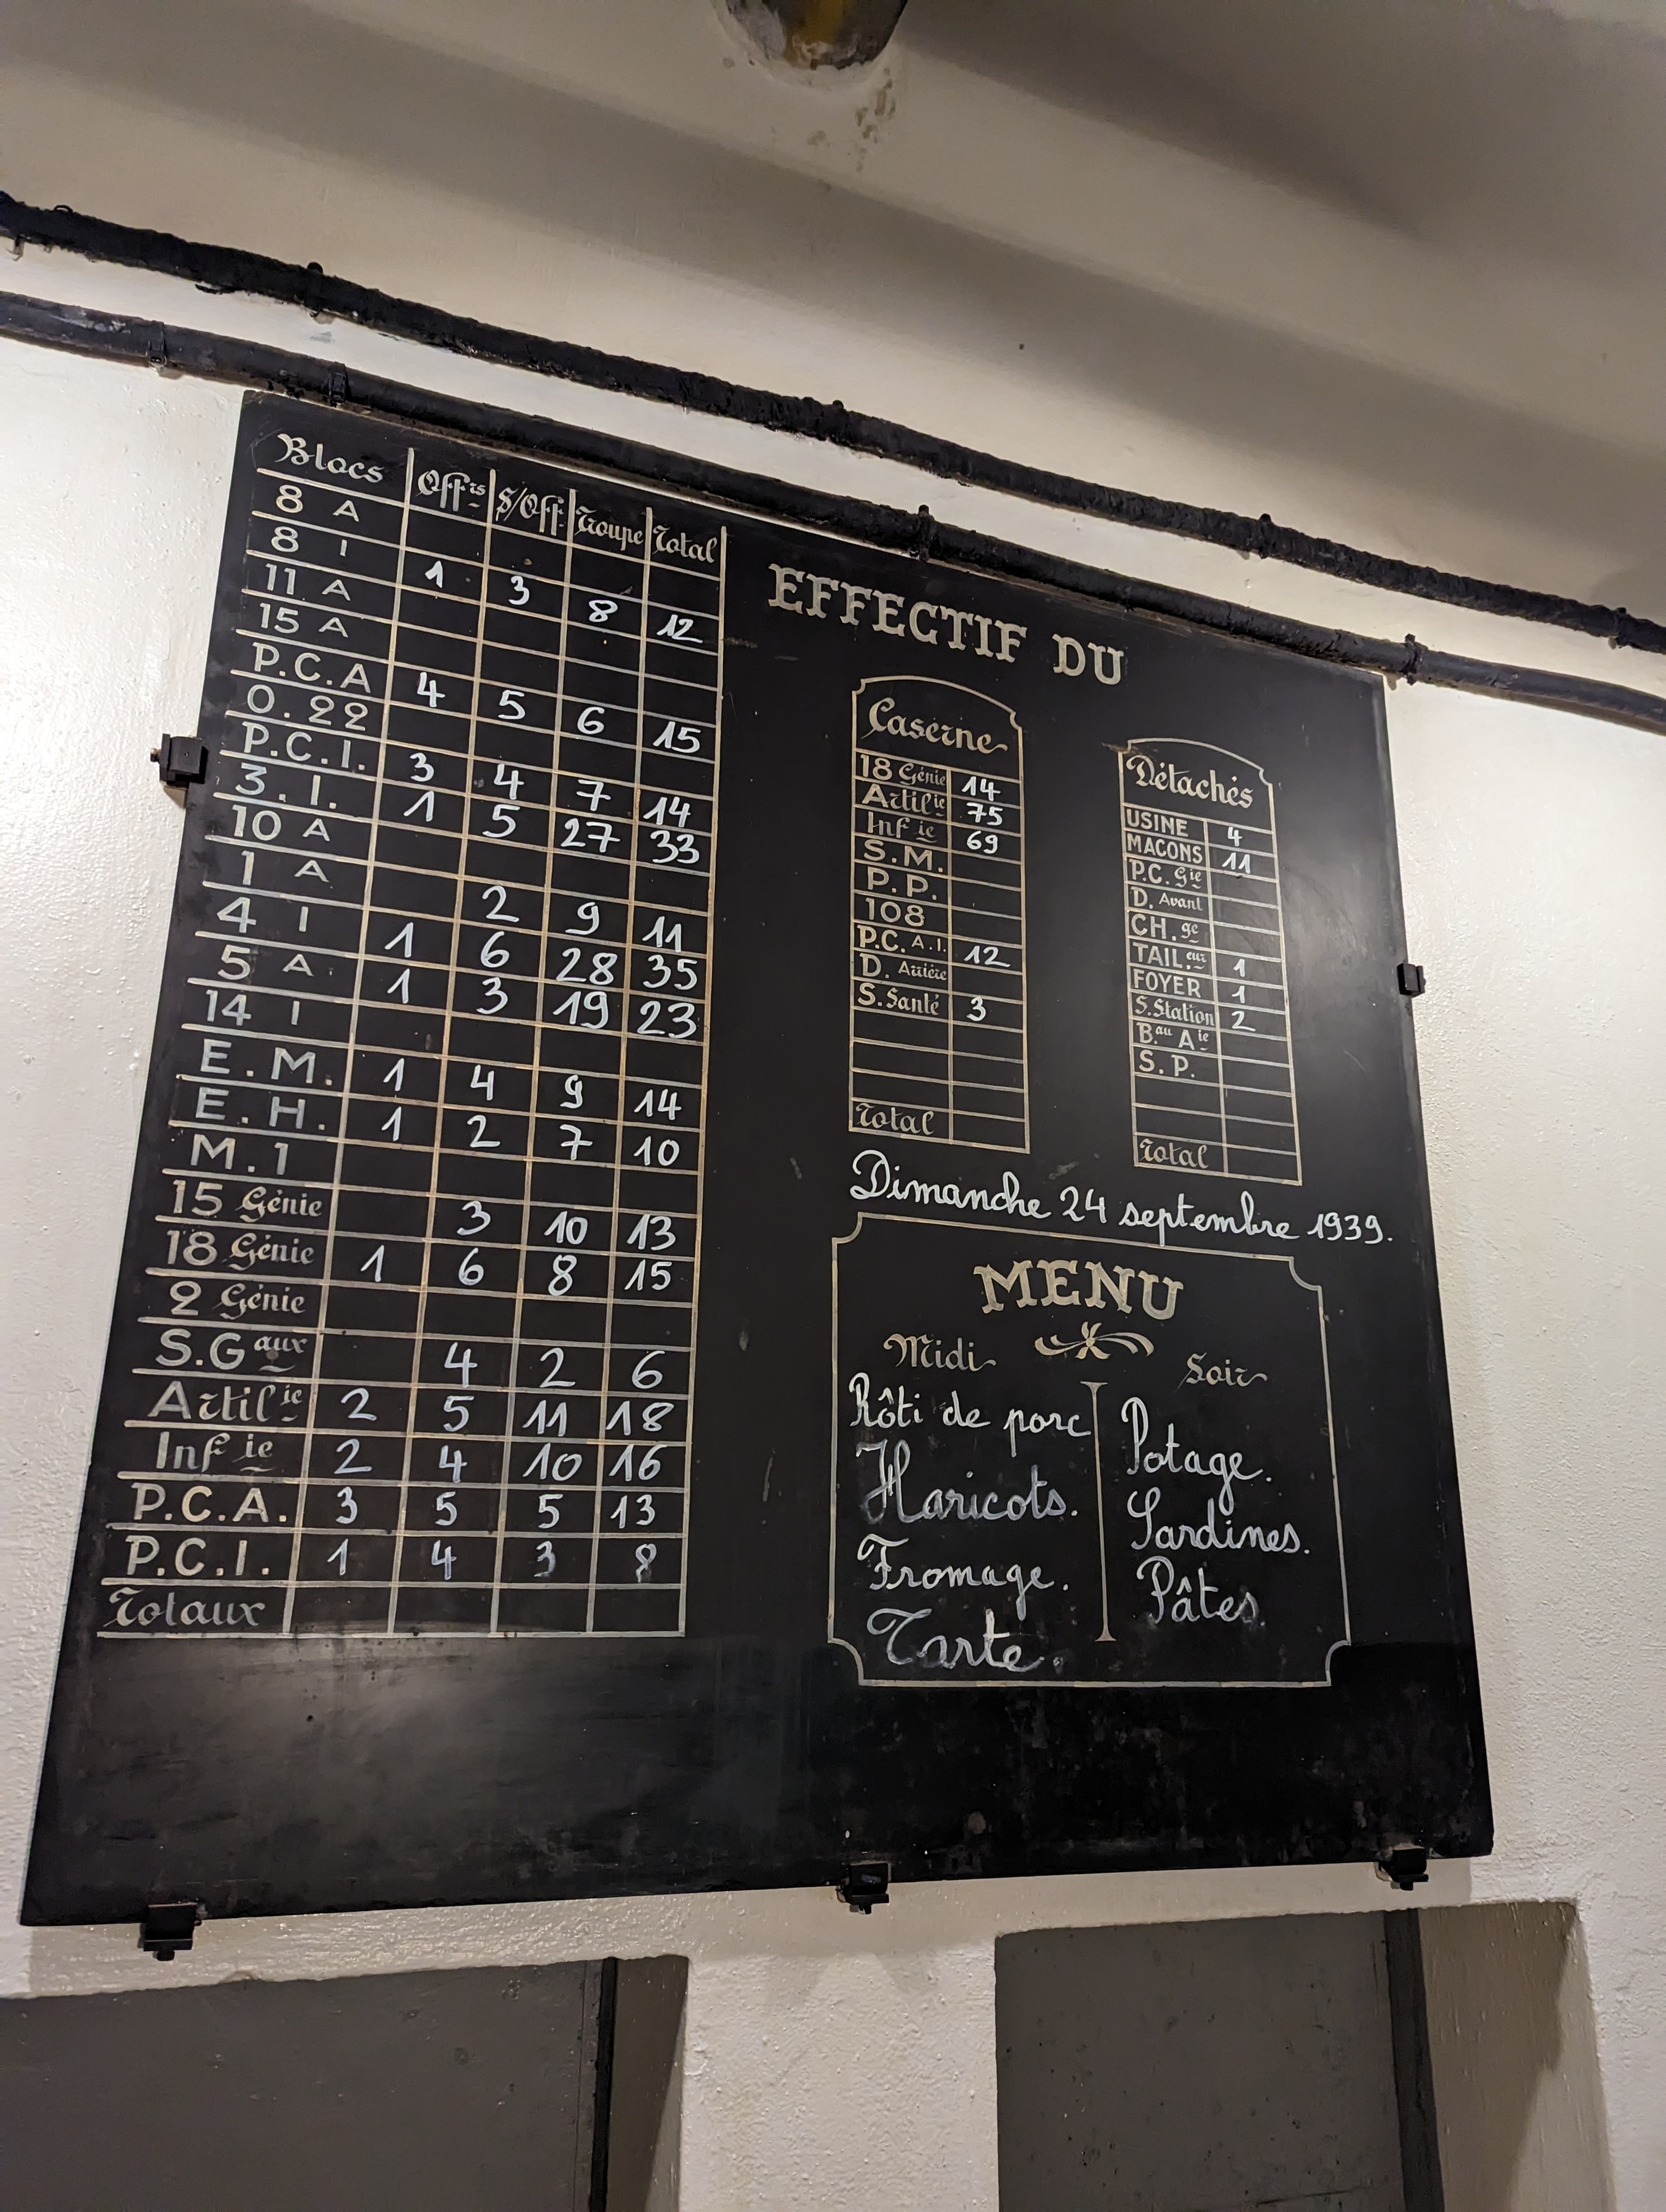 Blocs Off.rs S/Off. Troupe Total
8 A
8 I 1 3 8 12
11 A
15 A
P.C.A 4 5 6 15
O.22
P.C.I. 3 4 7 14
3.I. 1 5 27 33
10 A
1 A 2 9 11
4 I 1 6 28 35
5 A 1 3 19 23
14 I
E.M. 1 4 9 14
E.H. 1 2 7 10
M.1
15 Génie 3 10 13
18 Génie 1 6 8 15
2 Génie
S.G aux 4 2 6
Artil ie 2 5 11 18
Inf ie 2 4 10 16
P.C.A. 3 5 5 13
P.C.I. 1 4 3 8
Totaux
EFFECTIF DU
Caserne
18 Génie 14
Artil ie 75
Inf ie 69
S.M.
P.P.
108
P.C. A.I. 12
D. Arrière
S. Santé 3
Total
Détachés
USINE 4
MACONS 11
P.C. Gie
D. Avant
CH. ge
TAIL.eur 1
FOYER 1
S. Station 2
B.au A ie
S.P.
Total
Dimanche 24 septembre 1939.
MENU
Midi
Rôti de porc
Haricots.
Fromage.
Tarte.
Soir
Potage.
Sardines.
Pâtes.